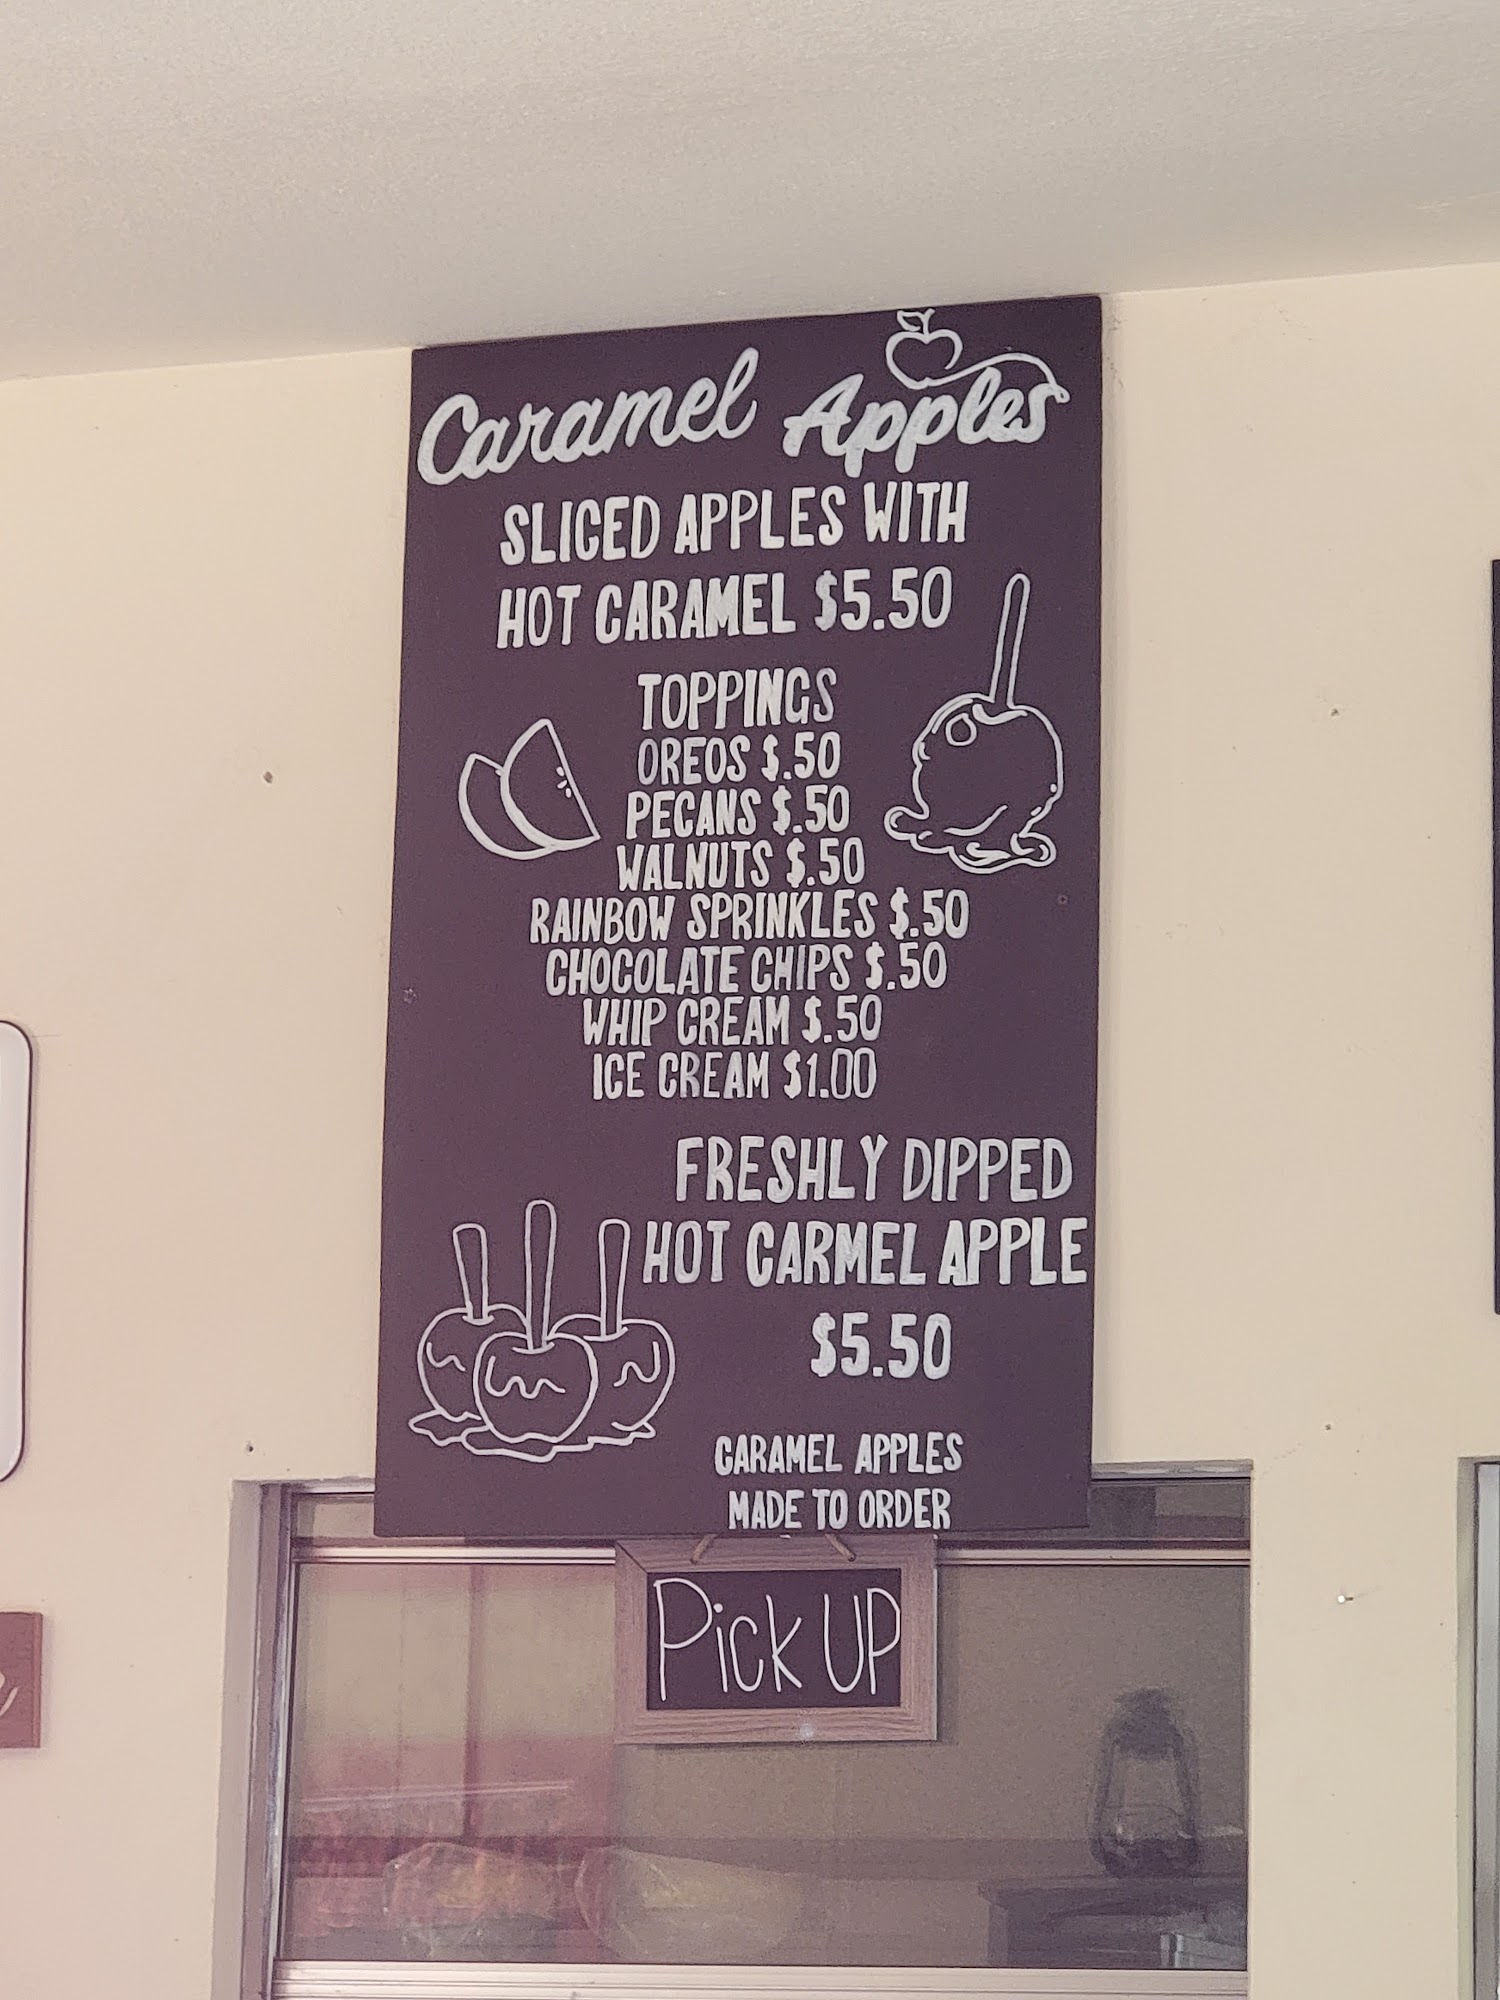 Caramel Apples
SLICED APPLES WITH
HOT CARAMEL $5.50
TOPPINGS
OREOS $.50
PECANS $.50
WALNUTS $.50
RAINBOW SPRINKLES $.50
CHOCOLATE CHIPS $.50
WHIP CREAM $.50
ICE CREAM $1.00
FRESHLY DIPPED
HOT CARMEL APPLE
$5.50
CARAMEL APPLES
MADE TO ORDER
Pick UP